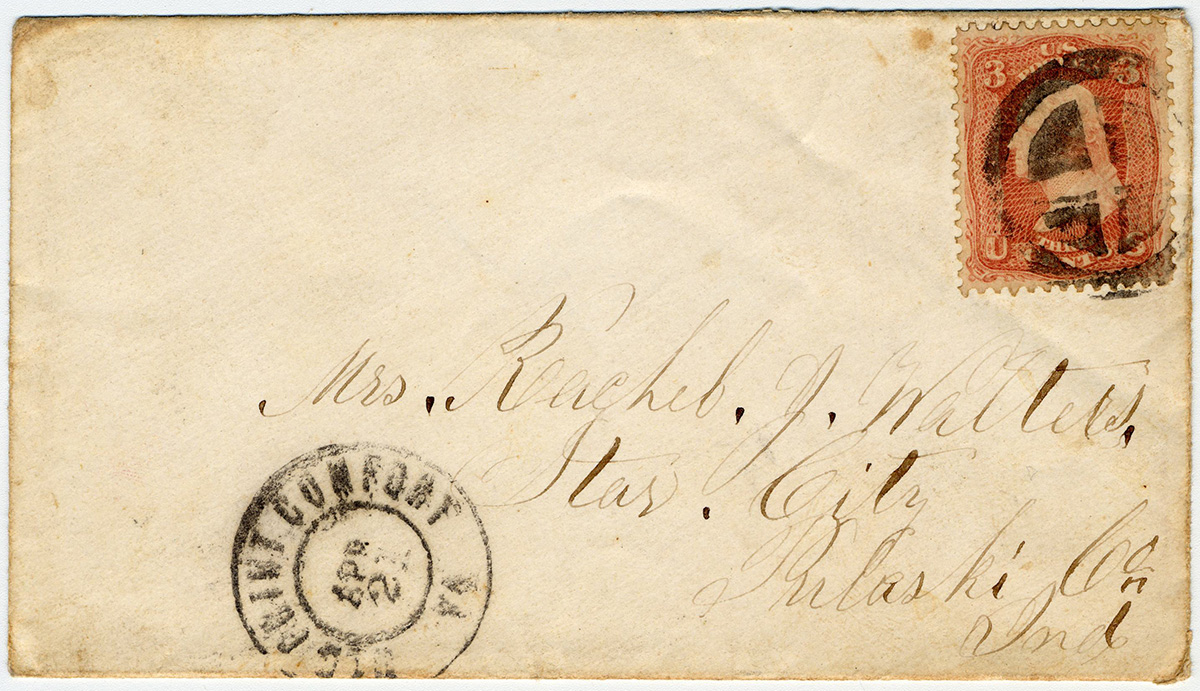 3 US 3
U THREE S
CENTS
Mrs. Rachel. J. Walters.
Star. City
Pulaski Co.
Ind
OLD POINT COMFORT VA
APR